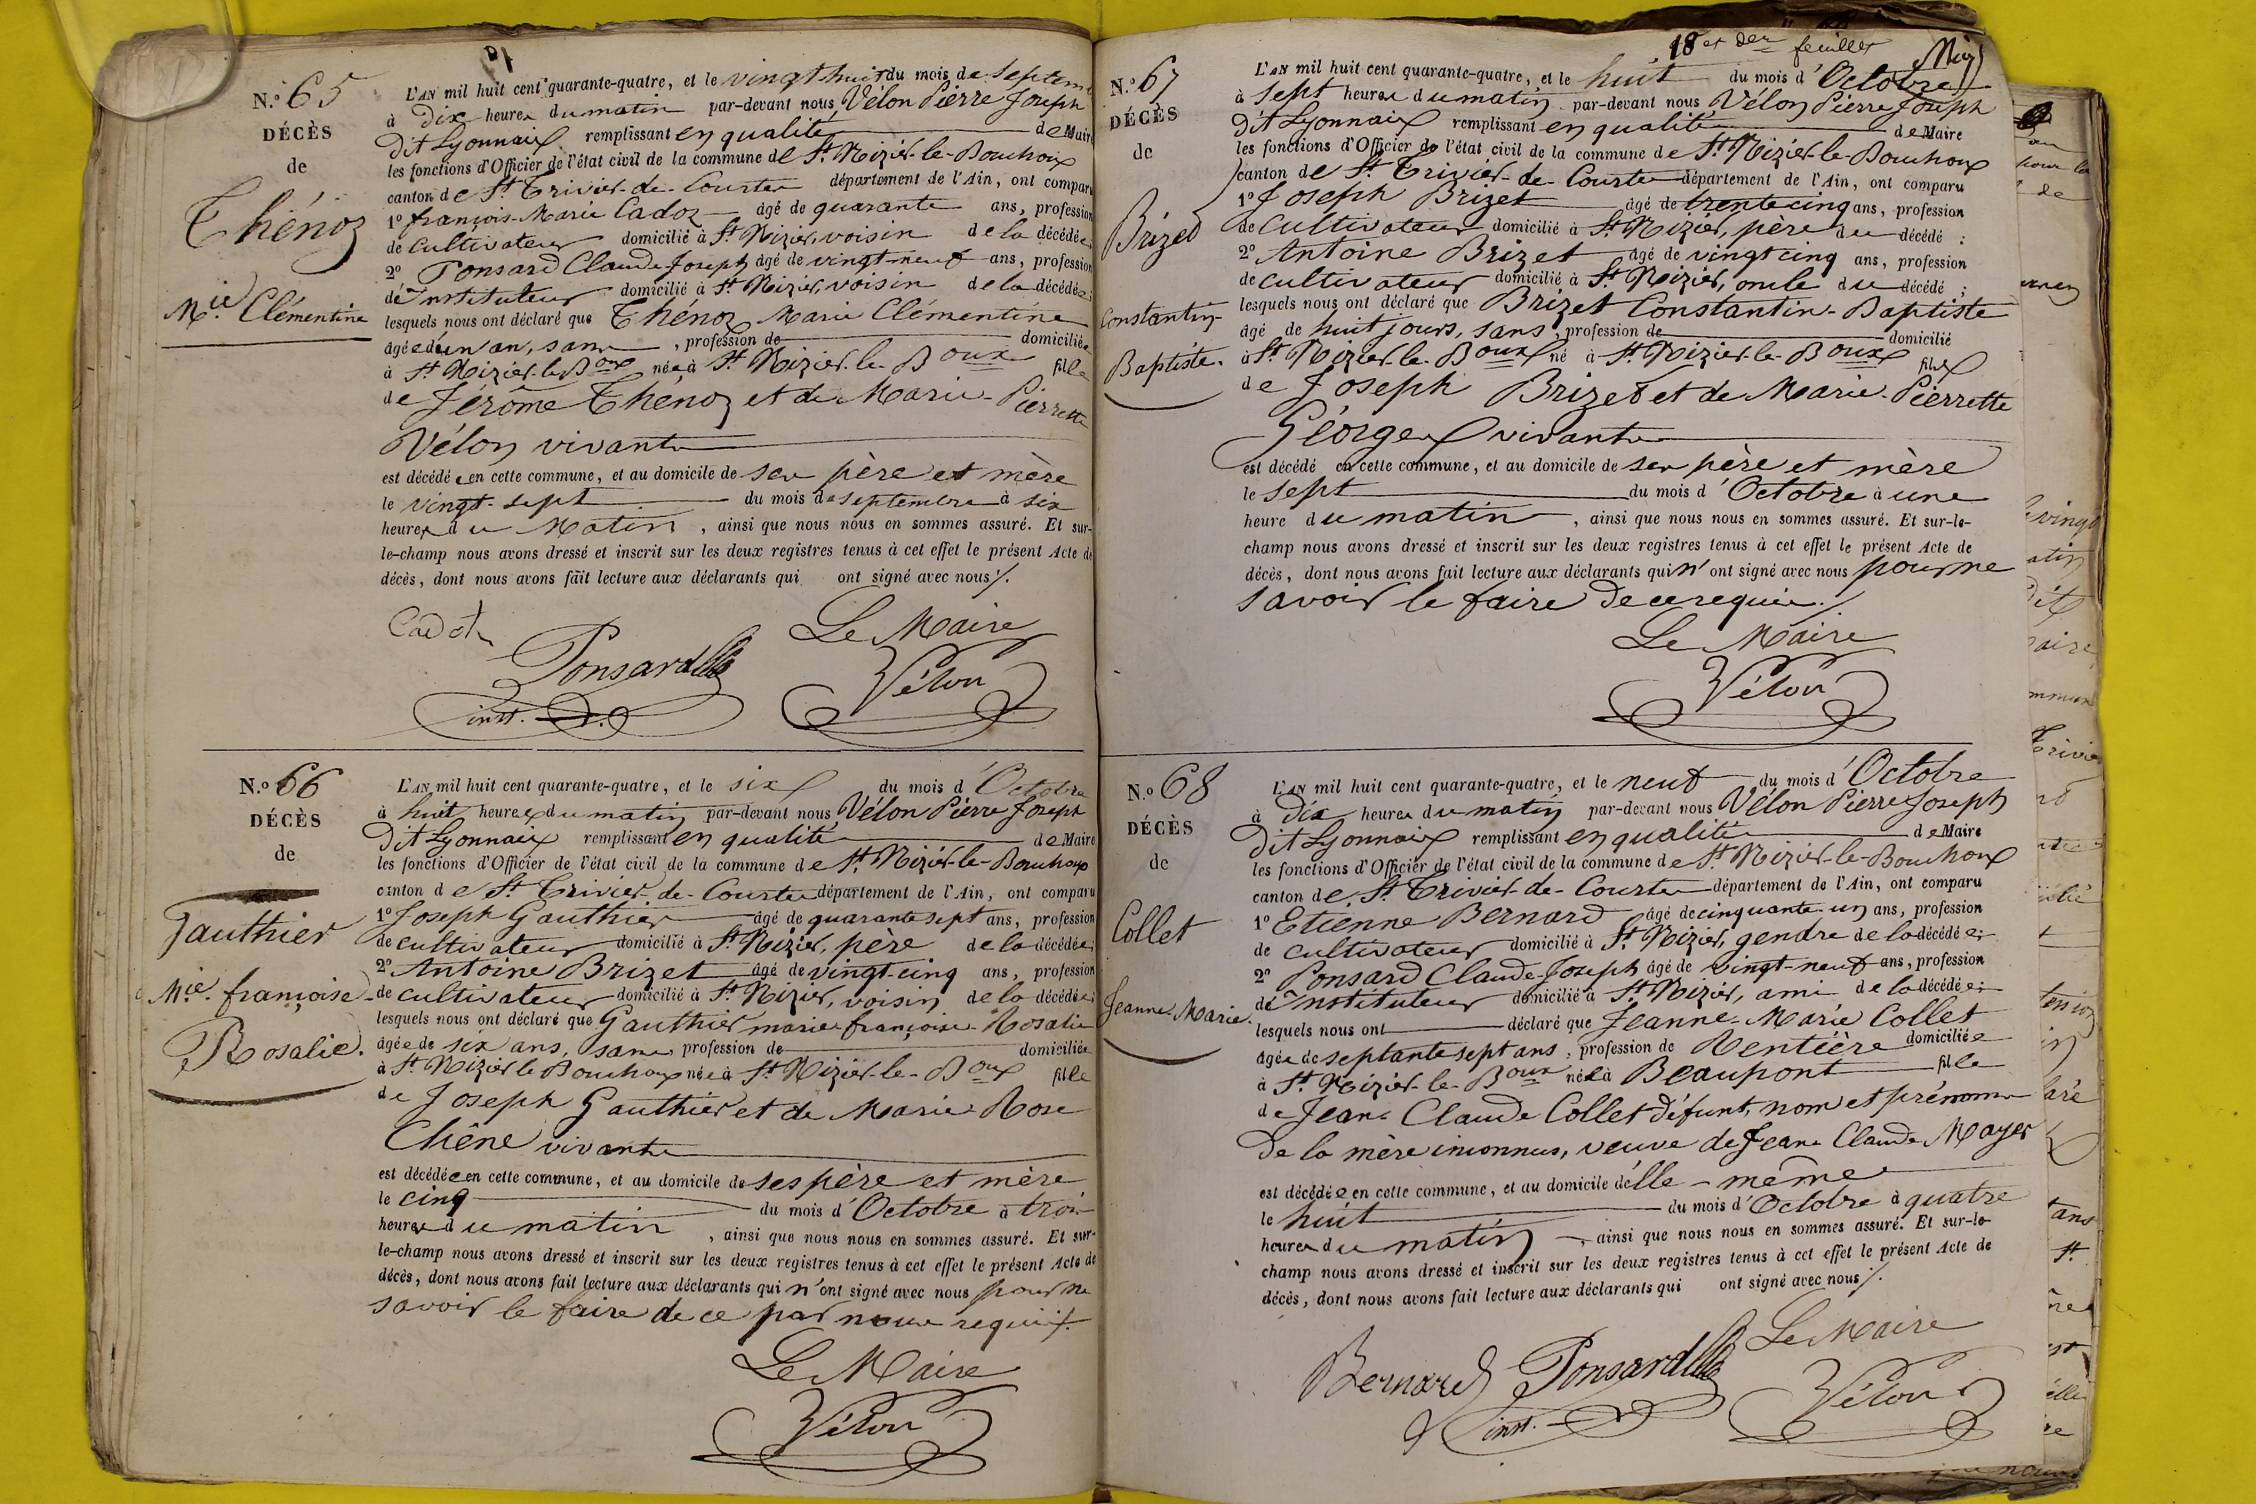 N.° 65
DÉCÈS
de
Thénoz
M.ie Clémentine
L'AN mil huit cent quarante-quatre, et le vingt huit du mois de Septem
à dix heures du matin par-devant nous Vélon Pierre Joseph
dit Lyonnais remplissant en qualité de Maire
les fonctions d'Officier de l'état civil de la commune de St. Nizier-le-Bouchoux
canton de St. Trivier-de-Courtes département de l'Ain, ont comparu
1° françois-Marie Cadoz âgé de quarante ans, profession
de cultivateur domicilié à St. Nizier, voisin de la décédée;
2° Ponsard Claude Joseph âgé de vingt-neuf ans, profession
d'instituteur domicilié à St. Nizier, voisin de la décédée;
lesquels nous ont déclaré que Thénoz Marie Clémentine
âgée d'un an, sans, profession de domiciliée
à St. Nizier-le-Boux née à St. Nizier-le-Boux fille
de Jérôme Thénoz et de Marie-Pierrette
Vélon vivants
est décédée en cette commune, et au domicile de ses père et mère
le vingt-sept du mois de septembre à six
heures du Matin, ainsi que nous nous en sommes assuré. Et sur-
le-champ nous avons dressé et inscrit sur les deux registres tenus à cet effet le présent Acte de
décès, dont nous avons fait lecture aux déclarants qui ont signé avec nous ./.
Cadot
Ponsard
inst.
Le Maire
Vélon
N.° 66
DÉCÈS
de
Gauthier
M.ie françoise-
Rosalie.
L'AN mil huit cent quarante-quatre, et le six du mois d'Octobre
à huit heures du matin par-devant nous Vélon Pierre Joseph
dit Lyonnais remplissant en qualité de Maire
les fonctions d'Officier de l'état civil de la commune de St. Nizier-le-Bouchoux
canton de St. Trivier-de-Courtes département de l'Ain, ont comparu
1° Joseph Gauthier âgé de quarante sept ans, profession
de cultivateur domicilié à St. Nizier, père de la décédée;
2° Antoine Brizet âgé de vingt-cinq ans, profession
de cultivateur domicilié à St. Nizier, voisin de la décédée;
lesquels nous ont déclaré que Gauthier marie françoise-Rosalie
âgée de six ans, sans profession de domiciliée
à St. Nizier le Bouchoux née à St. Nizier-le-Boux fille
de Joseph Gauthier et de Marie-Rose
Chêne vivants
est décédée en cette commune, et au domicile de ses père et mère
le cinq du mois d'Octobre à trois
heures du matin, ainsi que nous nous en sommes assuré. Et sur-
le-champ nous avons dressé et inscrit sur les deux registres tenus à cet effet le présent Acte de
décès, dont nous avons fait lecture aux déclarants qui n'ont signé avec nous pour ne
savoir le faire de ce par nous requis ./.
Le Maire
Vélon
18 et der feuillet
N.° 67
DÉCÈS
de
Brizet
Constantin-
Baptiste.
L'AN mil huit cent quarante-quatre, et le huit du mois d'Octobre
à sept heures du matin par-devant nous Vélon Pierre Joseph
dit Lyonnais remplissant en qualité de Maire
les fonctions d'Officier de l'état civil de la commune de St. Nizier-le-Bouchoux
canton de St. Trivier-de-Courtes département de l'Ain, ont comparu
1° Joseph Brizet âgé de trente cinq ans, profession
de cultivateur domicilié à St. Nizier, père du décédé;
2° Antoine Brizet âgé de vingt cinq ans, profession
de cultivateur domicilié à St. Nizier, oncle du décédé;
lesquels nous ont déclaré que Brizet Constantin-Baptiste
âgé de huit jours, sans, profession de domicilié
à St. Nizier-le-Boux né à St. Nizier-le-Boux fils
de Joseph Brizet et de Marie-Pierrette
Géorges vivants
est décédé en cette commune, et au domicile de ses père et mère
le sept du mois d'Octobre à une
heure du matin, ainsi que nous nous en sommes assuré. Et sur-le-
champ nous avons dressé et inscrit sur les deux registres tenus à cet effet le présent Acte de
décès, dont nous avons fait lecture aux déclarants qui n'ont signé avec nous pour ne
savoir le faire de ce requis ./.
Le Maire
Vélon
N.° 68
DÉCÈS
de
Collet
Jeanne-Marie.
L'AN mil huit cent quarante-quatre, et le neuf du mois d'Octobre
à dix heures du matin par-devant nous Vélon Pierre Joseph
dit Lyonnais remplissant en qualité de Maire
les fonctions d'Officier de l'état civil de la commune de St. Nizier-le-Bouchoux
canton de St. Trivier-de-Courtes département de l'Ain, ont comparu
1° Etienne Bernard âgé de cinquante-un ans, profession
de cultivateur domicilié à St. Nizier, gendre de la décédée;
2° Ponsard Claude-Joseph âgé de vingt-neuf ans, profession
d'instituteur domicilié à St. Nizier, ami de la décédée;
lesquels nous ont déclaré que Jeanne-Marie Collet
âgée de septante sept ans, profession de Rentière domiciliée
à St. Nizier-le-Boux née à Beaupont fille
de Jean-Claude Collet défunt, nom et prénoms
de la mère inconnus, veuve de Jean-Claude Mayer
est décédée en cette commune, et au domicile d'elle-même
le huit du mois d'Octobre à quatre
heures du matin, ainsi que nous nous en sommes assuré. Et sur-le-
champ nous avons dressé et inscrit sur les deux registres tenus à cet effet le présent Acte de
décès, dont nous avons fait lecture aux déclarants qui ont signé avec nous ./.
Bernard
Ponsard
inst.
Le Maire
Vélon